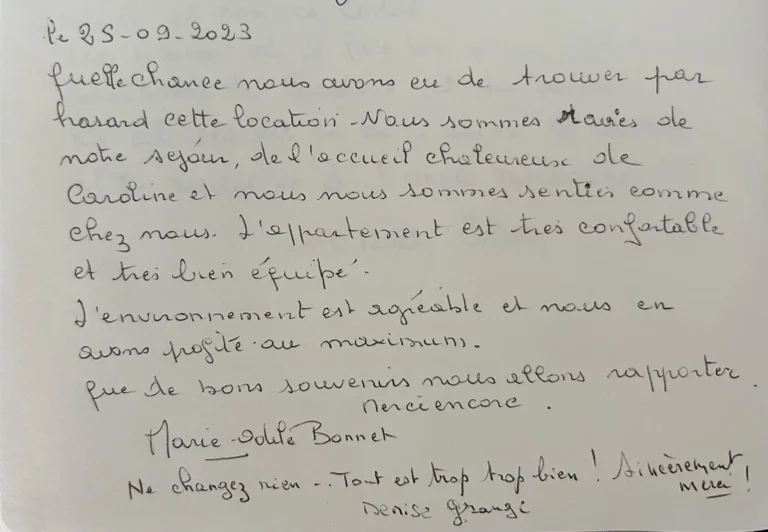 le 25-09-2023
Quelle chance nous avons eu de trouver par
hasard cette location - Nous sommes ravies de
notre sejour, de l'accueil chaleureux de
Caroline et nous nous sommes senties comme
chez nous. L'appartement est très confortable
et très bien équipé.
L'environnement est agréable et nous en
avons profité au maximum.
Que de bons souvenirs nous allons rapporter.
Merci encore.
Marie-Odile Bonnet
Ne changez rien... Tout est trop trop bien ! Sincèrement
merci !
Denise